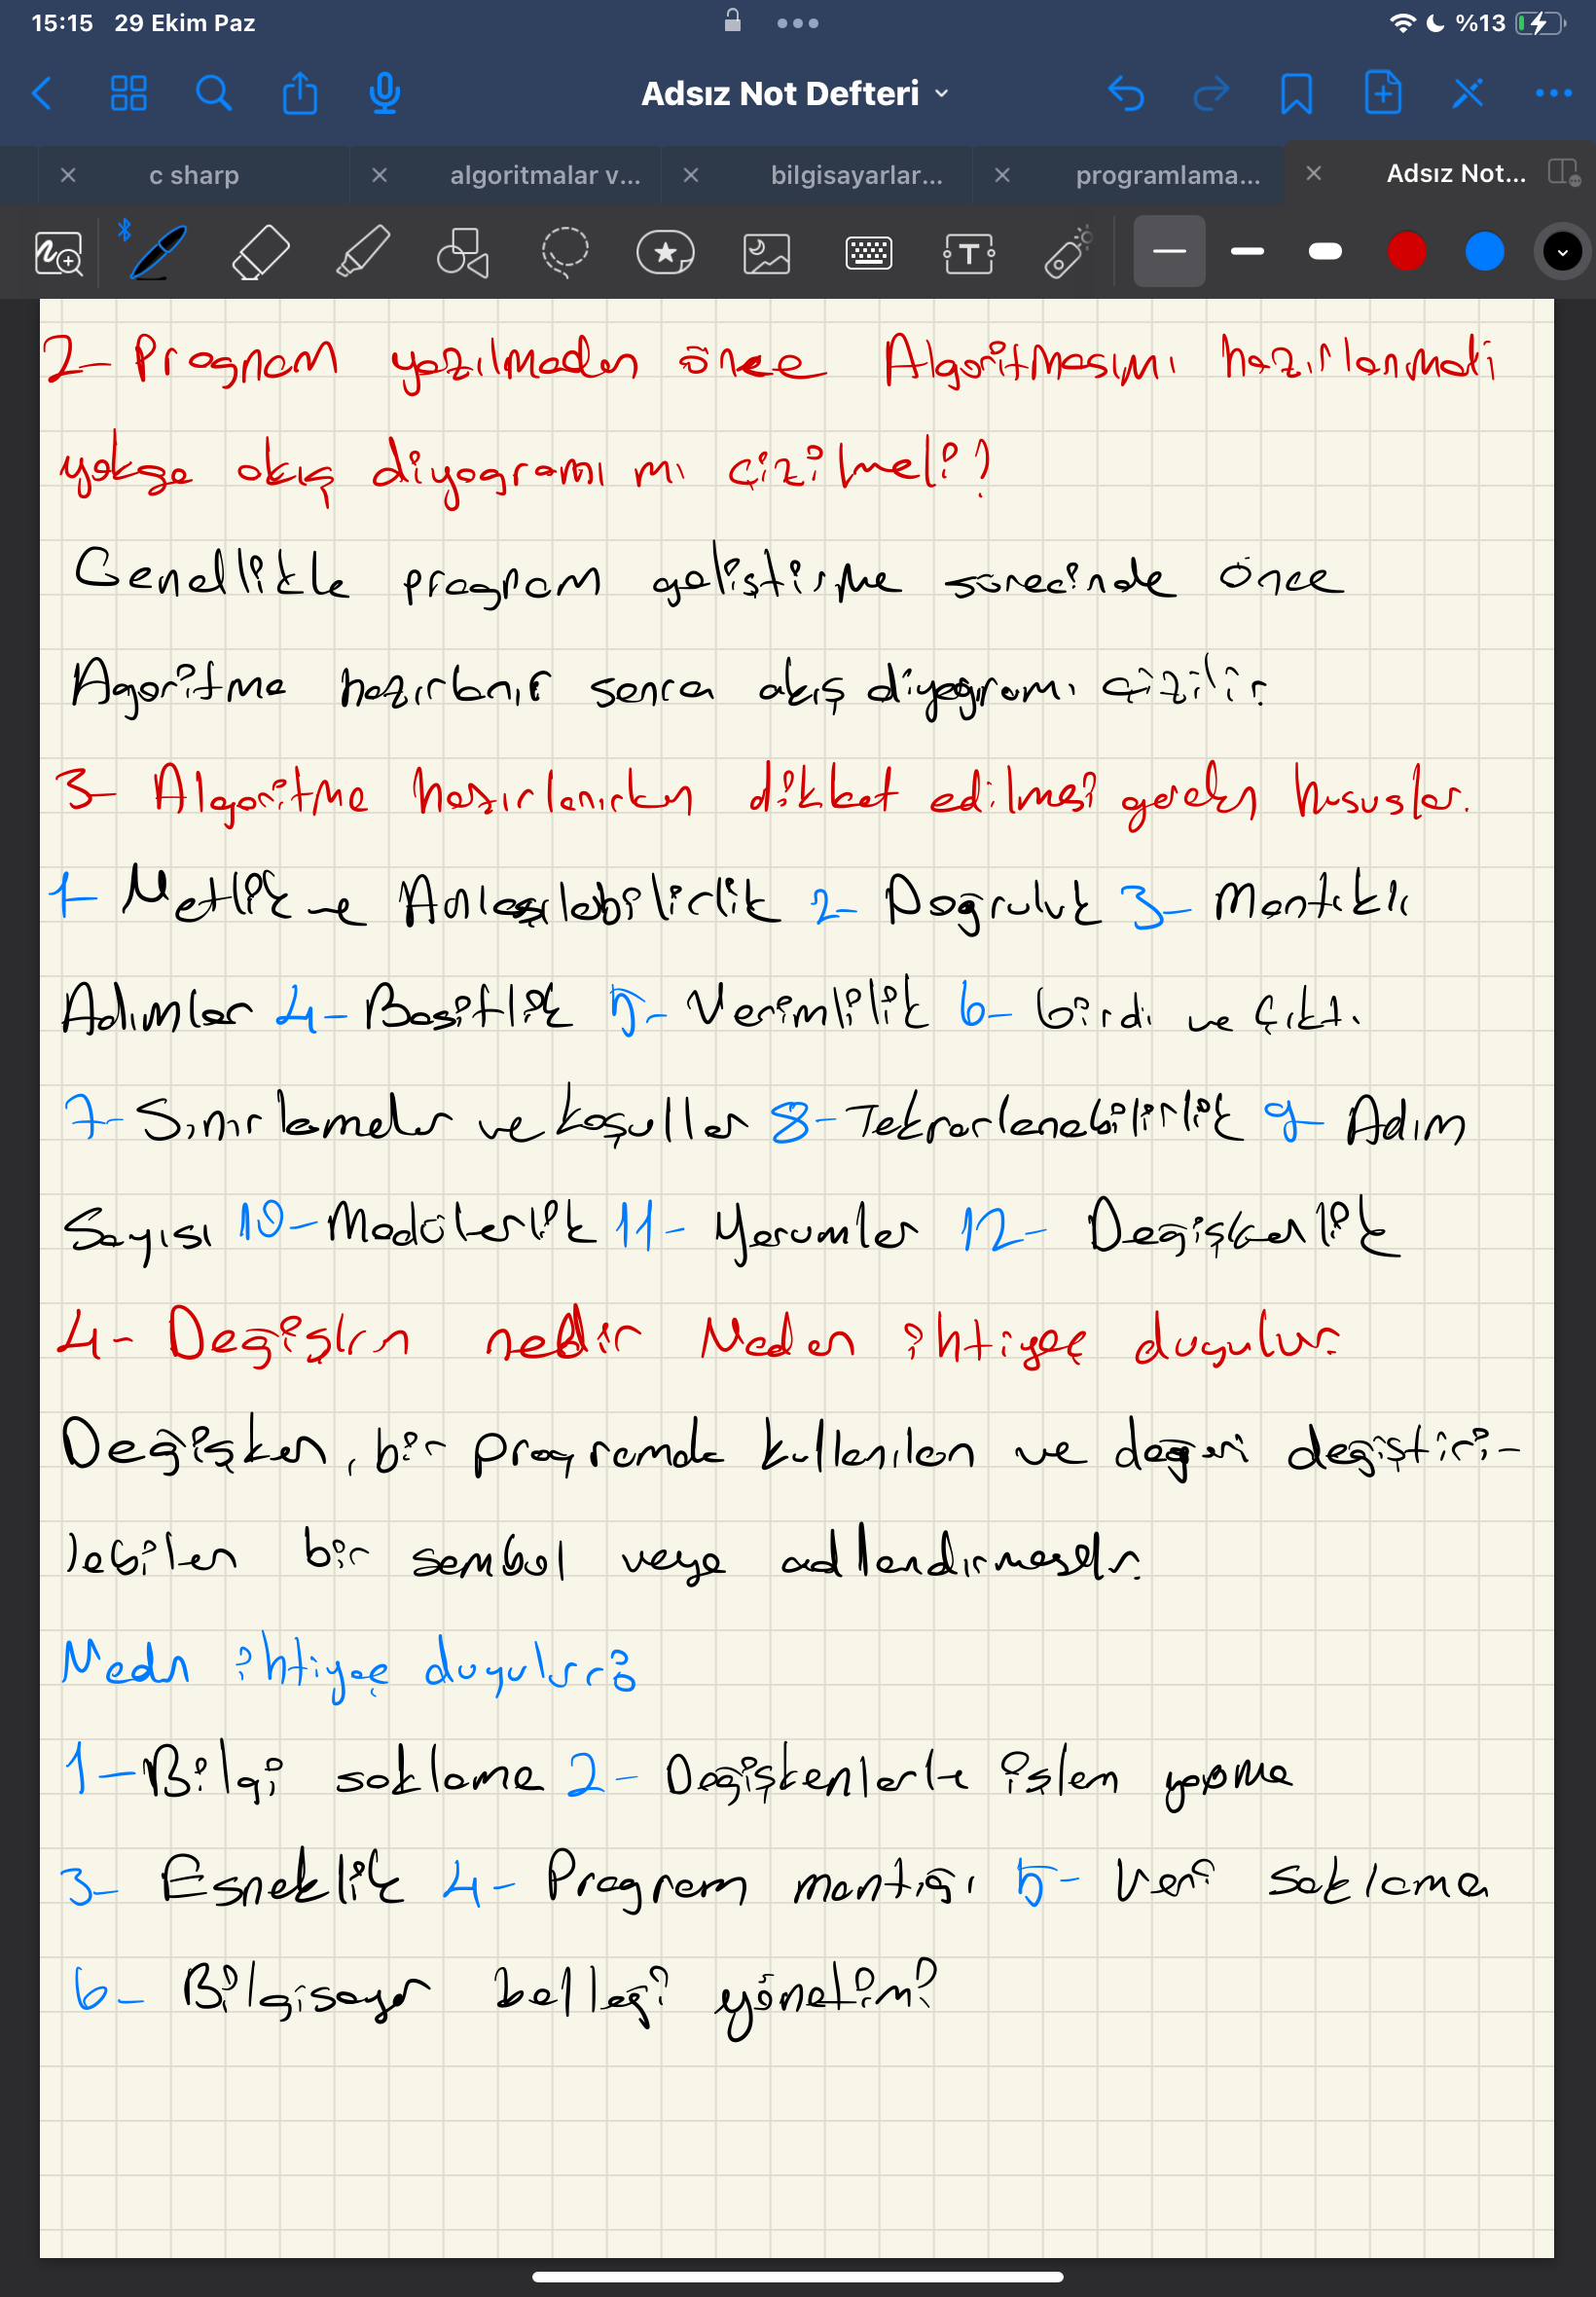 15:15 29 Ekim Paz %13
Adsız Not Defteri
c sharp algoritmalar v... bilgisayarlar... programlama... Adsız Not...
2- Program yazılmadan önce Algoritmasımı hazırlanmali
yoksa akış diyagramı mı çizilmeli?
Genellikle program geliştirme sürecinde önce
Agoritma hazırlanır sonra akış diyagramı çizilir
3- Algoritma hazırlanırken dikkat edilmesi gereken hususlar.
1- Netlik ve Anlaşılabilirlik 2- Doğruluk 3- Mantıklı
Adımlar 4- Basitlik 5- Verimlilik 6- Girdi ve Çıktı
7- Sınırlamalar ve koşullar 8- Tekrarlanabilirlik 9- Adım
Sayısı 10- Modülerlik 11- Yorumlar 12- Değişkenlik
4- Değişken nedir Neden ihtiyaç duyulur
Değişken, bir programda kullanılan ve değeri değiştiri-
lebilen bir sembol veya adlandırmasıdır.
Neden ihtiyaç duyulur:
1- Bilgi saklama 2- Değişkenlerle işlem yapma
3- Esneklik 4- Program mantığı 5- Veri saklama
6- Bilgisayar belleği yönetimi